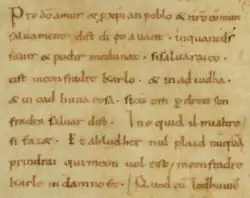 Pro dō amur & pxpīan poblo & nrō comun
saluament. dist di en auant. inquantdṡ
sauir & podir medunat. sisaluaraieo
cist meon fradre karlo. & in ad iudha
& in cad huna cosa. sicū om p dreit son
fradra saluar dist. Ino quid il mialtre
si faz&. Et ab ludher nul plaid nūquā
prindrai qui meon uol cist meon fradre
karle in damno sit. Quod cū lodhuuic